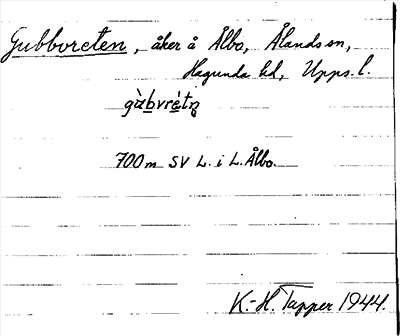 Gubbvreten, åker å Ålbo, Ålands sn,
Hagunda hd, Upps. l.
gὰb̲vrét̲ņ
700 m SV L. i L. Ålbo.
K.-H. Tapper 1944.